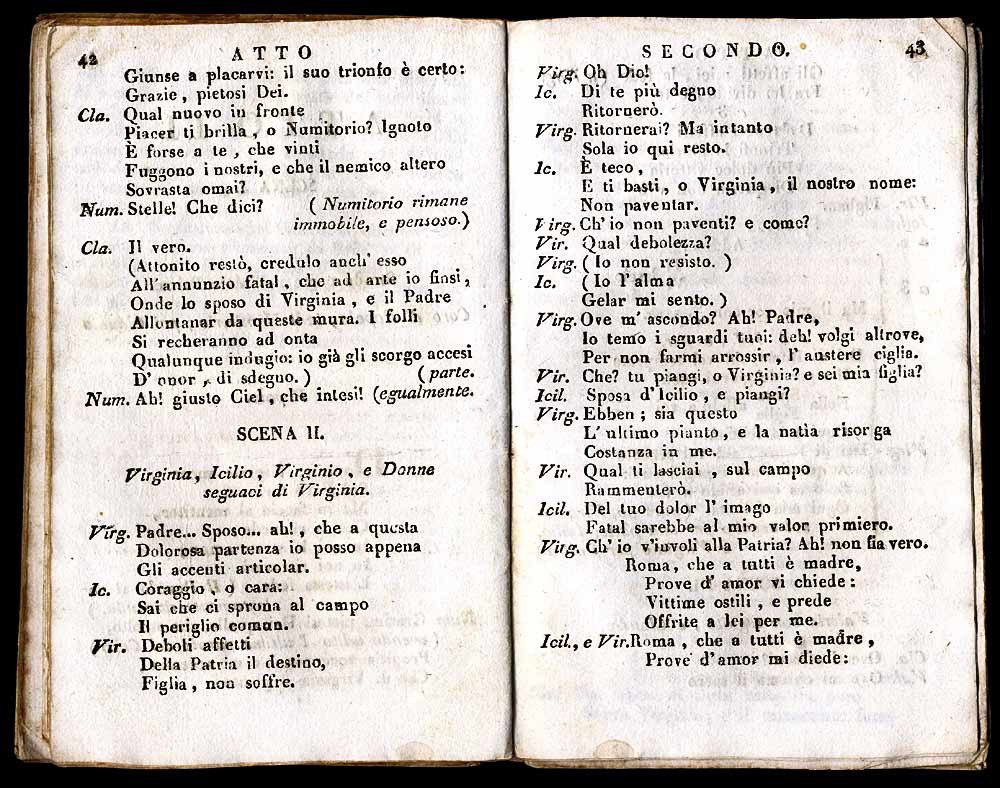 42
ATTO
Giunse a placarvi: il suo trionfo è certo:
Grazie, pietosi Dei.
Cla. Qual nuovo in fronte
Piacer ti brilla, o Numitorio? Ignoto
È forse a te, che vinti
Fuggono i nostri, e che il nemico altero
Sovrasta omai?
Num. Stelle! Che dici? (Numitorio rimane
immobile, e pensoso.)
Cla. Il vero.
(Attonito restò, credulo anch' esso
All' annunzio fatal, che ad arte io finsi,
Onde lo sposo di Virginia, e il Padre
Allontanar da queste mura. I folli
Si recheranno ad onta
Qualunque indugio: io già gli scorgo accesi
D' onor, di sdegno.) (parte.
Num. Ah! giusto Ciel, che intesi! (egualmente.
SCENA II.
Virginia, Icilio, Virginio, e Donne
seguaci di Virginia.
Virg. Padre... Sposo... ah!, che a questa
Dolorosa partenza io posso appena
Gli accenti articolar.
Ic. Coraggio, o cara:
Sai che ci sprona al campo
Il periglio comun.
Vir. Deboli affetti
Della Patria il destino,
Figlia, non soffre.
SECONDO.
43
Virg. Oh Dio!
Ic. Di te più degno
Ritornerò.
Virg. Ritornerai? Ma intanto
Sola io qui resto.
Ic. È teco,
E ti basti, o Virginia, il nostro nome:
Non paventar.
Virg. Ch' io non paventi? e come?
Vir. Qual debolezza?
Virg. (Io non resisto.)
Ic. (Io l' alma
Gelar mi sento.)
Virg. Ove m' ascondo? Ah! Padre,
Io temo i sguardi tuoi: deh! volgi altrove,
Per non farmi arrossir, l' austere ciglia.
Vir. Che? tu piangi, o Virginia? e sei mia figlia?
Icil. Sposa d' Icilio, e piangi?
Virg. Ebben; sia questo
L' ultimo pianto, e la natìa risorga
Costanza in me.
Vir. Qual ti lasciai, sul campo
Rammenterò.
Icil. Del tuo dolor l' imago
Fatal sarebbe al mio valor primiero.
Virg. Ch' io v'involi alla Patria? Ah! non fia vero.
Roma, che a tutti è madre,
Prove d' amor vi chiede:
Vittime ostili, e prede
Offrite a lei per me.
Icil., e Vir. Roma, che a tutti è madre,
Prove d' amor mi diede: